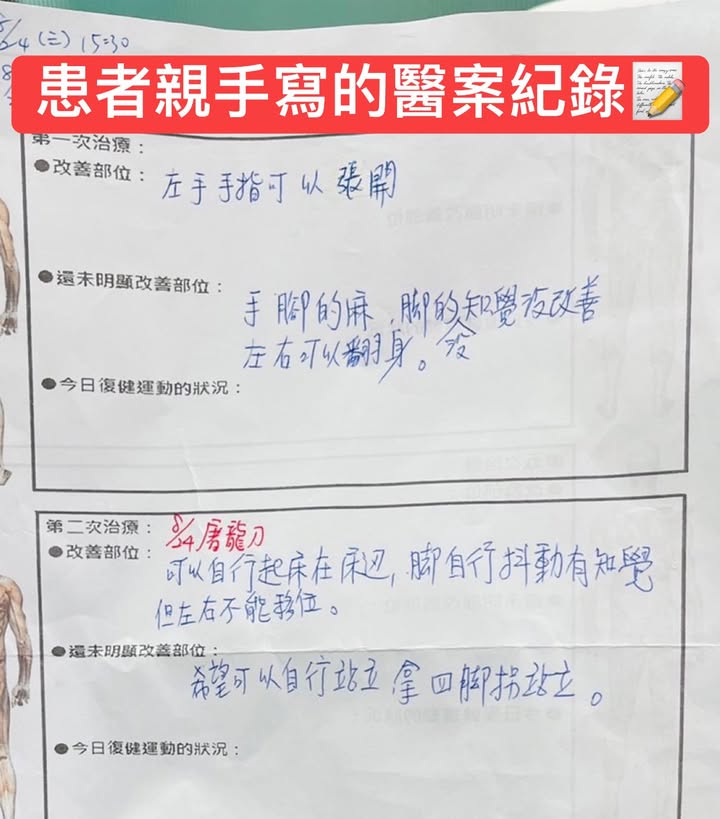 8/24 (三) 15:30
患者親手寫的醫案紀錄
第一次治療：
●改善部位： 左手手指可以張開
●還未明顯改善部位：
手腳的麻，腳的知覺沒改善
左右可以翻身。
●今日復健運動的狀況：
第二次治療： 8/24 屠龍刀
●改善部位：
可以自行起床在床边，腳自行抖動有知覺
但左右不能移位。
●還未明顯改善部位：
希望可以自行站立 拿四腳拐站立。
●今日復健運動的狀況：